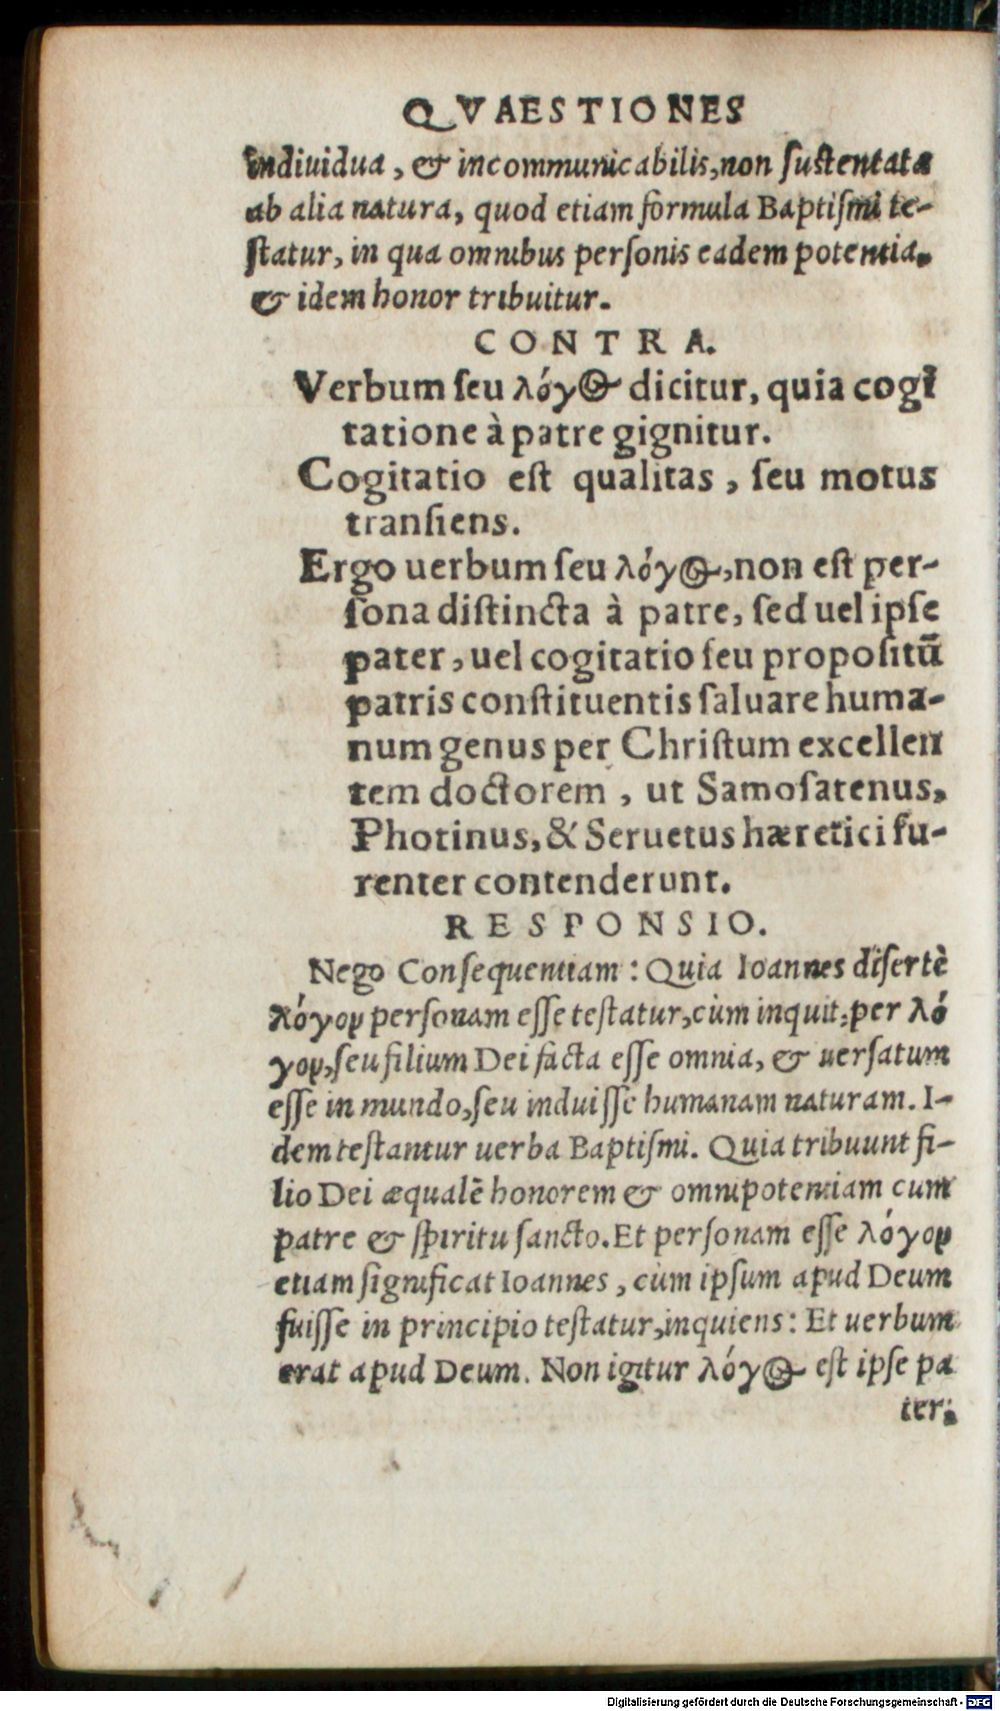 QVAESTIONES
indiuidua, & incommunicabilis, non ſuſtentata
ab alia natura, quod etiam formula Baptiſmi te-
ſtatur, in qua omnibus perſonis eadem potentia,
& idem honor tribuitur.
CONTRA.
Verbum ſeu λόγος dicitur, quia cogi
tatione à patre gignitur.
Cogitatio est qualitas, ſeu motus
tranſiens.
Ergo uerbum ſeu λόγος, non eſt per-
ſona diſtincta à patre, ſed uel ipſe
pater, uel cogitatio ſeu propoſitū
patris conſtituentis ſaluare huma-
num genus per Chriſtum excellen
tem doctorem, ut Samoſatenus,
Photinus, & Seruetus hæretici fu-
renter contenderunt.
RESPONSIO.
Nego Conſequentiam: Quia Ioannes diſertè
λόγον perſonam eſſe teſtatur, cùm inquit: per λό
γον, ſeu filium Dei facta eſſe omnia, & uerſatum
eſſe in mundo, ſeu induiſſe humanam naturam. I-
dem teſtantur uerba Baptiſmi. Quia tribuunt fi-
lio Dei æqualē honorem & omnipotentiam cum
patre & ſpiritu ſancto. Et perſonam eſſe λόγον
etiam ſignificat Ioannes, cùm ipſum apud Deum
fuiſſe in principio teſtatur, inquiens: Et uerbum
erat apud Deum. Non igitur λόγος eſt ipſe pa
ter,
Digitalisierung gefördert durch die Deutsche Forschungsgemeinschaft - DFG